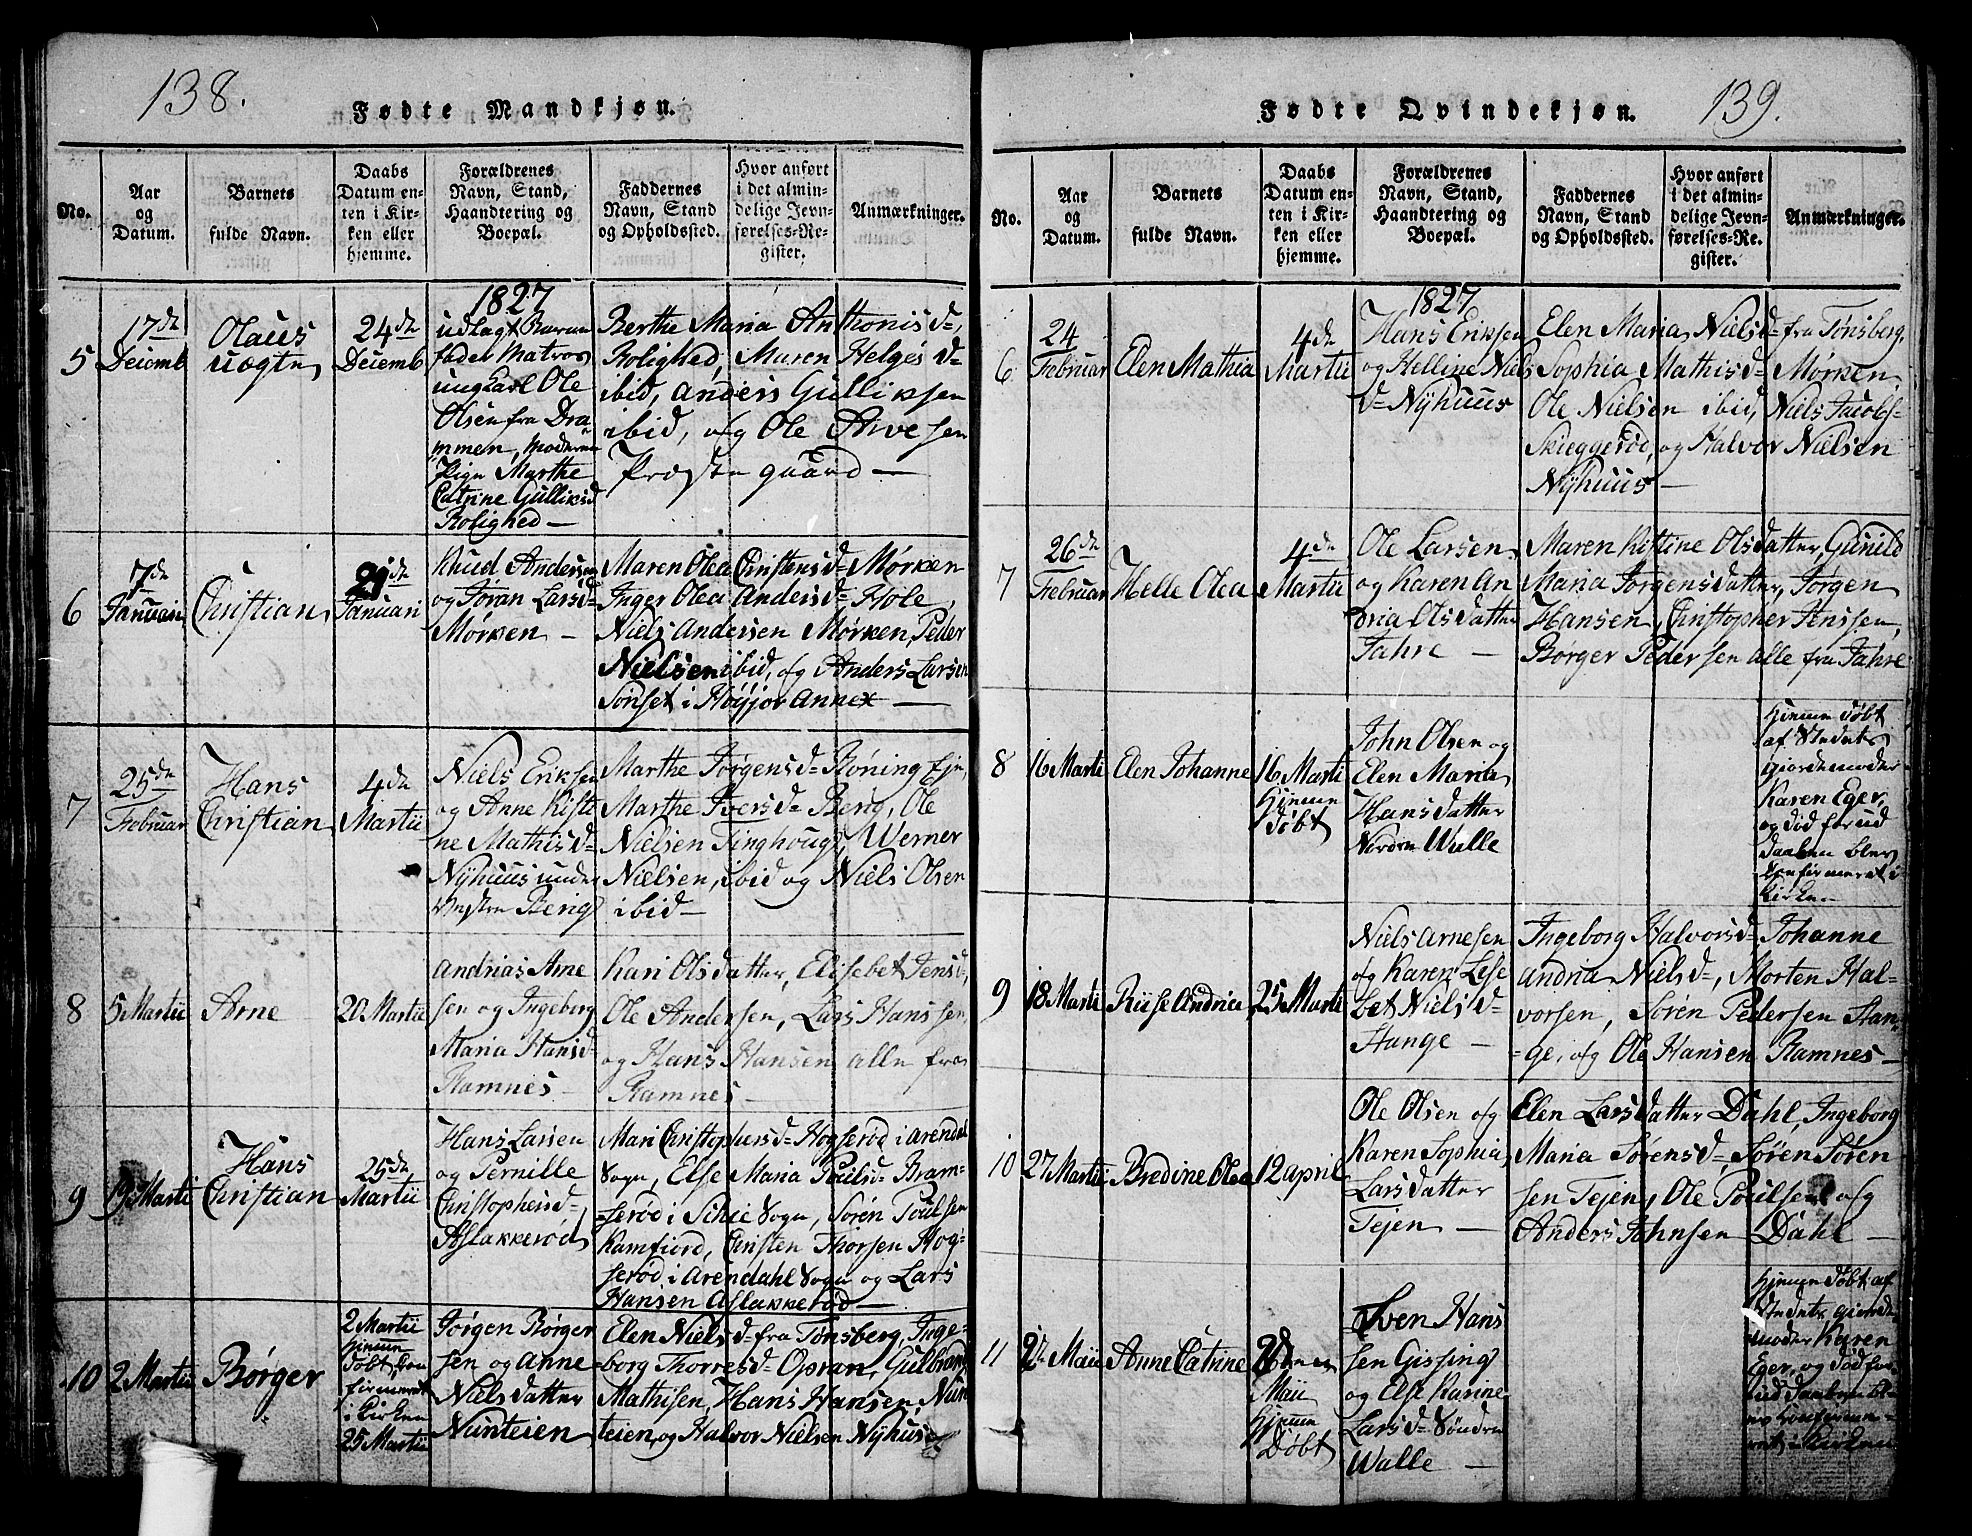 138.
Fødte Mandkjøn.
No.
Aar
og
Datum.
Barnets
fulde Navn.
Daabs
Datum en-
ten i Kir-
ken eller
hjemme.
Forældrenes
Navn, Stand,
Haandtering og
Boepæl.
Faddernes
Navn, Stand
og Opholdssted.
Hvor anført
i det almin-
delige Jevn-
førelses-Re-
gister.
Anmærkninger.
5
17de
Decemb
Olaus
uægte
24de
Decemb
1827
udlagt Barne
fader Matros
ungkarl Ole
Olsen fra Dra
mmen, Moderen
Pige Marthe
Catrine Gulliksd
Rolighed —
Berthe Maria Anthonisd=,
Rolighed, Maren Helges d=
ibid, Anders Gulliksen
ibid, og Ole Arvesen
Præstegaard —
6
7de
Januari
Christian
21de
Januari
Knud Andersen
og Jøran Larsd=
Mørken —
Maren Olea Christensd= Mørken
Inger Olea Andersd= Hole,
Niels Andersen Mørken, Peder
Nielsen ibid, og Anders Larsen
Sønset i Høyjor Annex —
7
25de
Februar
Hans
Christian
4de
Martii
Niels Eriksen
og Anne Kisti
ne Mathisd=
Nyhuus under
Berg
Marthe Jørgensd= Røning Eje,
Marthe Iversd= Berg, Ole
Nielsen Tinghoug, Werner
Nielsen, ibid og Niels Olsen
ibid —
8
5 Martii
Arne
20 Martii
Andrias Arne
sen og Ingeborg
Maria Hansd=
Ramnes —
Kari Olsdatter, Elisebet Jensd,
Ole Andersen, Lars Hanssen,
og Hans Hansen alle fra
Ramnes —
9
19 Martii
Hans
Christian
25de
Martii
Hans Larsen
og Pernille
Christophersd=,
Aslakkerød
Mari Christophersd= Hogserød i Arendal
Sogn, Else Maria Poulsd= Bram-
=serød i Sogn, Søren Poulsen
Kamfjord, Christen Thorsen Hog-
serød i Arendahl Sogn og Lars
Hansen Aslakkerød —
10
2 Martii
Børger
2 Martii
hjemme
døbt, Con
firmeret
i Kirken
25 Martii
Jørgen Børger
sen og Anne
Nielsdatter
Nunteien
Elen Nielsd= fra Tønsberg, Inge-
borg Thorresd= Opran, Gulbrand
Mathisen, Hans Hansen, Nun
teien, og Halvor Nielsen Nyhus
139.
Fødte Qvindekjøn.
No.
Aar
og
Datum.
Barnets
fulde Navn.
Daabs
Datum en-
ten i Kir-
ken eller
hjemme.
Forældrenes
Navn, Stand,
Haandtering og
Boepæl.
Faddernes
Navn, Stand
og Opholdssted.
Hvor anført
i det almin-
delige Jevn-
førelses-Re-
gister.
Anmærkninger.
6
24
Februar
Elen Mathia
4de
Martii
1827
Hans Eriksen
og Helline Niels
d= Nyhuus
Elen Maria Nielsd= fra Tønsberg,
Sophia Mathisd= Mørken,
Ole Nielsen ibid, Niels Jacobs-
Skieggerød, og Halvor Nielsen
Nyhuus —
7
26de
Februar
Helle Olea
4de
Martii
Ole Larsen
og Karen An
dria Olsdatter
Fahre —
Maren Kistine Olsdatter, Gunild
Maria Jørgensdatter, Jørgen
Hansen, Christopher Jenssen,
Børger Pedersen alle fra Fahre
8
16 Marti
Elen Johanne
16 Marti
hjemme
døbt
John Olsen og
Elen Maria
Hansdatter
Nordre Walle
hjemme døbt
af Stedets
Giordemoder
Karen Eger,
og død førend
Daaben blev
confirmeret i
Kirken
9
18 Marti
Riise Andrica
25 Marti
Niels Arnesen
og Karen Lese
bet Nielsd=
Stange —
Ingeborg Halvorsd= Johanne
Andria Nielsd=, Morten Hal-
vorsen, Søren Pedersen Stan-
=ge, og Ole Hansen Ramnes —
10
27 Martii
Bredine Olea
12 april
Ole Olsen og
Karen Sophia
Larsdatter
Tejen —
Elen Larsdatter Dahl, Ingeborg
Maria Sørensd= Søren Søren
sen Tejen, Ole Poulsen og
Anders Johnsen Dahl —
11
2de Maii
Anne Catrine
Maii
hjemme
Døbt
Sven Hans
sen Gissing
og Else Karine
Larsd= Søndre
Walle —
hjemme døbt af
Stedets giorde
moder Karen
Eger, og død før
end Daaben bl-
ev Confirme-
ret i Kirken